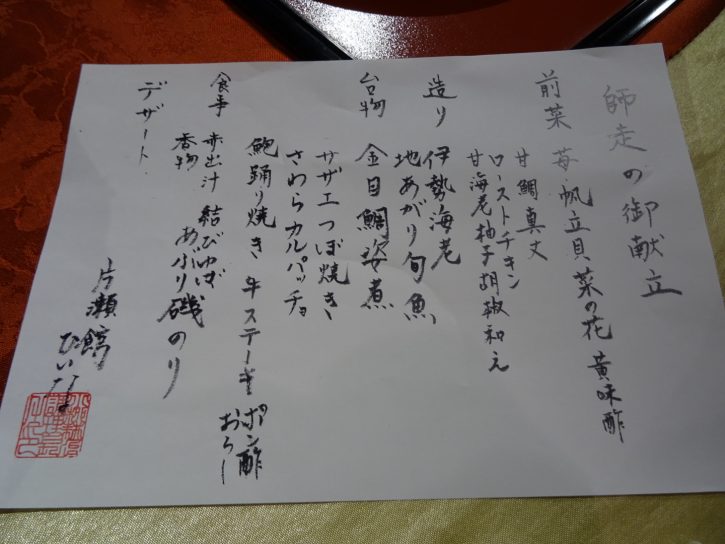 師走の御献立
前菜 苺・帆立貝 菜の花 黄味酢
甘鯛真丈
ローストチキン
甘海老柚子胡椒和え
造り 伊勢海老
地あがり旬魚
台物 金目鯛姿煮
サザエつぼ焼き
さわらカルパッチョ
鮑踊り焼き 牛ステーキ ポン酢 おろし
食事 赤出汁 結びゆば あぶり磯のり
香物
デザート
片瀬館 ひいな